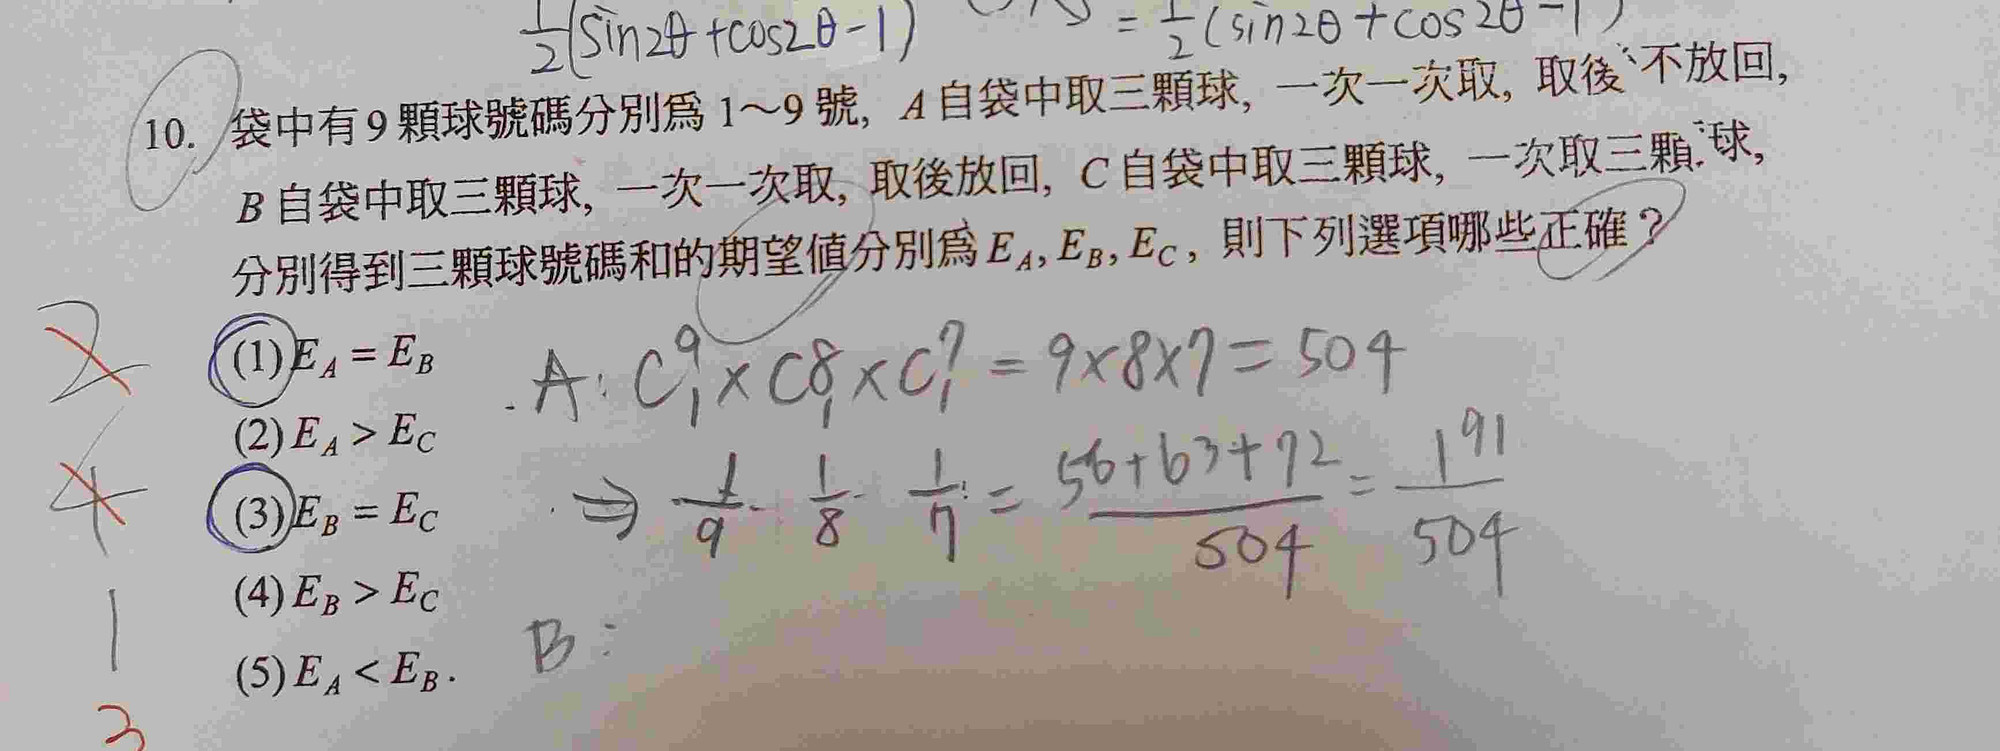 ½(sin2θ+cos2θ-1) = ½(sin2θ+cos2θ-1)
10. 袋中有9顆球號碼分別爲1～9號, A自袋中取三顆球, 一次一次取, 取後不放回,
B自袋中取三顆球, 一次一次取, 取後放回, C自袋中取三顆球, 一次取三顆球,
分別得到三顆球號碼和的期望值分別爲 E_A, E_B, E_C, 則下列選項哪些正確？
2
(1) E_A = E_B
A: C^9_1 × C^8_1 × C^7_1 = 9×8×7 = 504
(2) E_A > E_C
4
(3) E_B = E_C
⇒ 1/9 1/8 1/7 = (56+63+72)/504 = 191/504
(4) E_B > E_C
1
B:
(5) E_A < E_B.
3